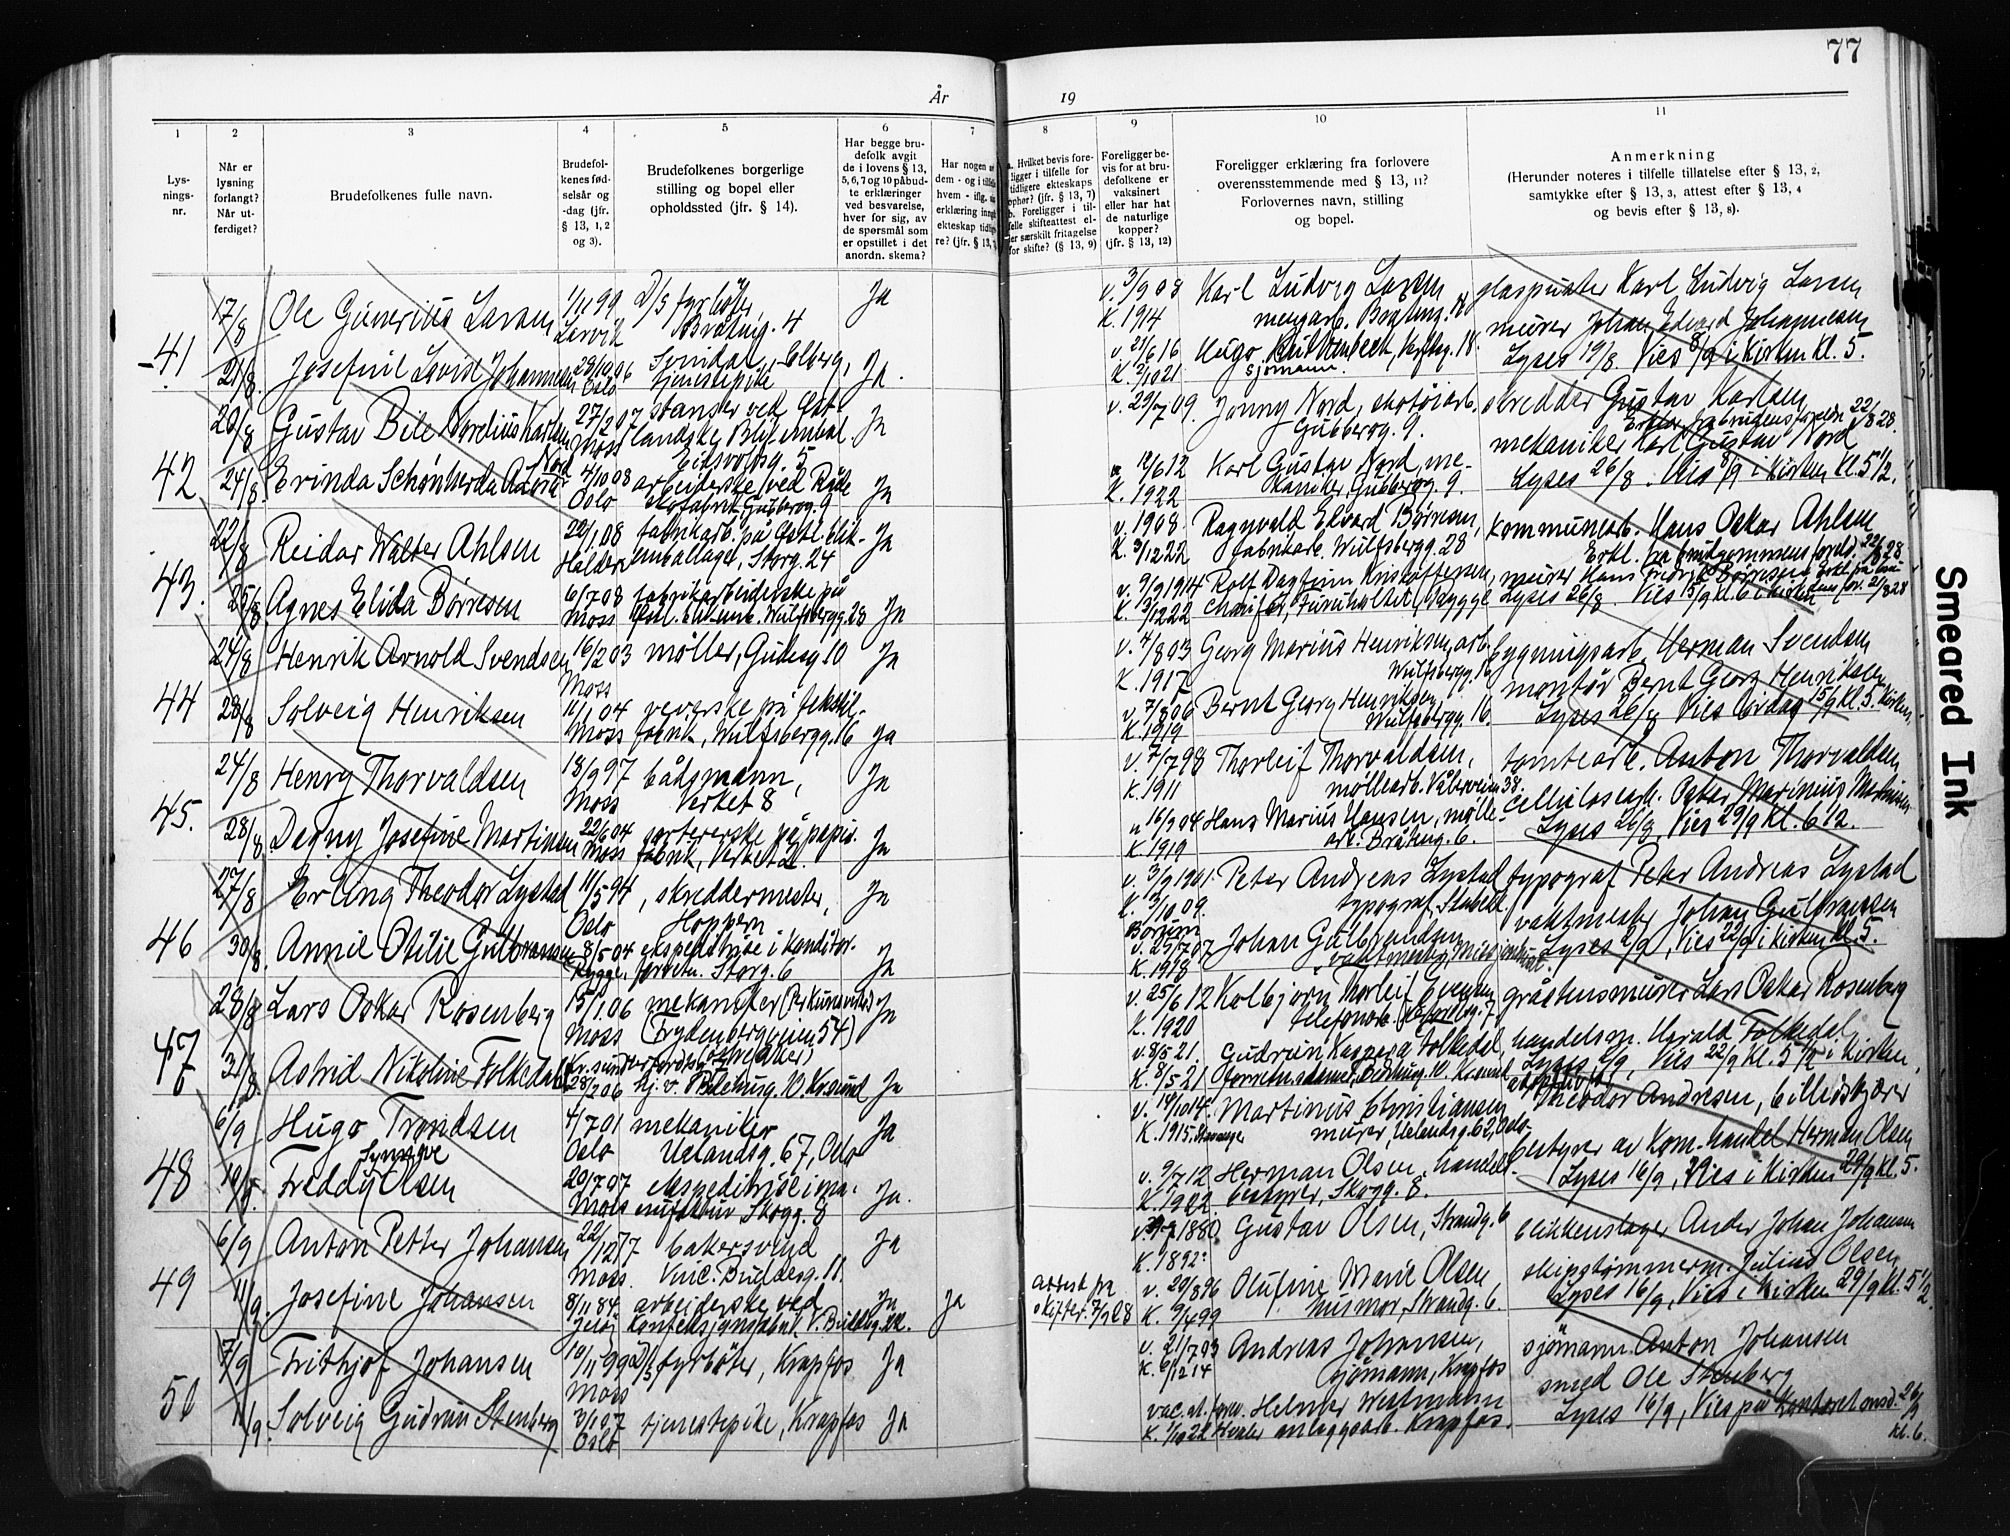 77
År
19
1
2
3
4
5
6
7
8
9
10
11
Lys-
nings-
nr.
Når er
lysning
forlangt?
Når ut-
ferdiget?
Brudefolkenes fulle navn.
Brudefol-
kenes fød-
selsår og
-dag (jfr.
§ 13, 1, 2
og 3).
Brudefolkenes borgerlige
stilling og bopel eller
opholdssted (jfr. § 14).
Har begge bru-
defolk avgit
de i lovens § 13,
5, 6, 7 og 10 påbud-
te erklæringer
ved besvarelse,
hver for sig, av
de spørsmål som
er opstillet i det
anordn. skema?
Har nogen av
dem - og i tilfelle
hvem - iflg.
erklæring inngått
ekteskap tidlige-
re? (jfr. § 13, 7)
a. Hvilket bevis fore-
ligger i tilfelle for
tidligere ekteskaps
ophør? (jfr. § 13, 7)
b. Foreligger i til-
felle skifteattest el-
ler særskilt fritagelse
for skifte? (§ 13, 9)
Foreligger be-
vis for at bru-
defolkene er
vaksinert
eller har hat
de naturlige
kopper?
(jfr. § 13, 12)
Foreligger erklæring fra forlovere
overensstemmende med § 13, 11?
Forlovernes navn, stilling
og bopel.
Anmerkning
(Herunder noteres i tilfelle tillatelse efter § 13, 2,
samtykke efter § 13, 3, attest efter § 13, 4
og bevis efter § 13, 8).
41
17/8 Ole Gunerius Larsen 1/11 99 Larvik D/S fyrbøter, Bråteng. 4 Ja
v. 3/9 08 K. 1914 Karl Ludvig Larsen Bråteng. 18 glaspuster Karl Ludvig Larsen
21/8 Josefine Lovise Johannesen 29/10 06 Oslo tjenestepike Ja.
v. 21/6 16 K. 2/10 21 Hugo sjømann murer Johan Edvard Johannesen
Lyses 19/8. Vies 8/9 i Kirken Kl. 5.
42
20/8 Gustav Karlsen 27/2 07 Moss stanser ved Øst-landske Blikembal. Eidsvollsg. 5 Ja
v. 29/7 09. Jonny Nord, skotøiarb. Gubberog. 9. skredder Gustav Karlsen
Erkl. fra brudens foreldre 22/8 28.
24/8 Erinda Nord 4/10 08 Oslo arbeiderske ved Råde skofabrik, Gubberog. 9 Ja
12/6 12 K. 1922 Karl Gustav Nord, mekaniker, Gubberog. 9. mekaniker Karl Gustav Nord
Lyses 26/8. Vies 8/9 i Kirken Kl. 5 1/2.
43.
22/8 Reidar Walter Ahlsen 29/1 08 Halden fabrikarb. på Østl. blik-emballage, Storg. 24 Ja
v. 1908 K. 3/12 22 Ragnvald Edvard Børresen, fabrikarb. Wulfsbergg. 28 kommunearb. Hans Oskar Ahlsen
Erkl. fra brudgommens foreld. 22/8 28
25/8 Agnes Elida Børresen 6/7 08 Moss fabrikarbeiderske på Østl. blik-emb. Wulfsbergg. 28 Ja
v. 9/9 1914 K. 3/12 22 Rolf Dagfinn Kristoffersen, chaufør, Furuholtet, Rygge murer Hans Fredrik Børresen
Lyses 26/8. Vies 15/9 kl. 6 i kirken
44
24/8 Henrik Arnold Svendsen 16/2 03 Moss møller, Gudesg. 10 Ja
v. 4/8 03 K. 1917 Georg Marius Henriksen, arb. Wulfsbergg. 16 bygningsarb. Herman Svendsen
28/8 Solveig Henriksen 11/1 04 Moss veverske på tekstil-fabrik, Wulfsbergg. 16 Ja
v. 7/8 06 K. 1919 Bernt Georg Henriksen, Wulfsbergg. 16. montør Bernt Georg Henriksen
Lyses 26/8 Vies lørdag 15/9 Kl. 5. Kirken
45.
24/8 Henry Thorvaldsen 18/9 97 Moss bådsmann, Verket 8 Ja
v. 7/7 98 K. 1911 Thorleif Thorvaldsen, møllearb. Vålerveien 38. tomtearb. Anton Thorvaldsen
28/8 Dagny Josefine Martinsen 22/6 04 Moss sortererske på papir-fabrik, Verket 2. Ja
v. 16/9 04 K. 1919 Hans Marius Hansen, mølle-arb. Bråteng. 6. Cellulosearb. Oskar Marinius Martinsen
Lyses 26/8, Vies 29/9 Kl. 6 1/2.
46
27/8 Erling Theodor Lystad 11/5 94 Oslo, skreddermester, Hoppern Ja
v. 3/9 1901. K. 3/10 09. Peter Andreas Lystad typograf, typograf Peter Andreas Lystad
30/8. Annie Otilie Gulbransen 8/5 04 Rygge, ekspeditrise i konditor-forretn. Storg. 6 Ja
v. 27/7 07 K. 1918 Johan Gulbrandsen vaktmester, vaktmester Johan Gulbransen
Lyses 2/9, Vies 22/9 i kirken kl. 5.
47
28/8 Lars Oskar Rosenberg 15/1 06 Moss mekaniker (Trydenbergveien 54) Ja
v. 25/6 12 K. 1920 Kolbjørn Thorleif Evensen telefonarb. gråstensmurer Lars Oskar Rosenberg
31/8 Astrid Nikoline Folkedal Kr.sund 28/2 06 Ja
v. 8/5 21. K. 8/5 21 Gudrun Kaspara Folkedal, handelsm. Harald Folkedal
Lyses 2/9, Vies 22/9 Kl. 5 1/2 i Kirken,
48
6/9 Hugo Trondsen 4/7 01 Oslo mekaniker Uelandsg. 67, Oslo Ja
v. 14/10 14. K. 1915. Stavanger Martinus Christiansen murer, Uelandsg. 62, Oslo. Theodor Andresen, billedskjærer
10/9. Freddy Synnøve Olsen 20/7 07 Moss ekspeditrise i manufaktur Skogg. 8 Ja.
v. 9/7 12 K. 1922 Herman Olsen, handels-bestyrer, Skogg. 8. bestyrer av Kom. handel Herman Olsen
Lyses 16/9, Vies i Kirken 29/9 Kl. 5.
49
6/9 Anton Petter Johansen 22/12 77 Moss. bakersvend Vinc. Buddesg. 11. Ja
v. 1880 K. 1892: Gustav Olsen, Strandg. 6 blikkenslager Ander Johan Johansen
11/9 Josefine Johansen 8/11 84. Jeløy arbeiderske ved Konfeksjonsfabrik Ja Ja
attest fra skifter. 7/9 28 v. 29/8 96 K. 9/4 99 Olufine Marie Olsen, husmor, Strandg. 6. skipstømmerm. Julius Olsen
Lyses 16/9, Vies i Kirken 29/9 kl. 5 1/2.
50
7/9 Frithjof Johansen 10/11 99 Moss D/S fyrbøter, Krapfos Ja
v. 21/7 03 K. 6/12 14 Andreas Johansen, sjømann, Krapfos sjømann Anton Johansen
11/9. Solveig Gudrun Stenberg 3/1 07 Oslo tjenestepike, Krapfos Ja
K. 1/10 22 Helmer Westmann anleggsarb. Krapfos. smed Ole Stenberg
Lyses 16/9, Vies på Kontoret onsd. 26/9 kl. 6.
Smeared Ink